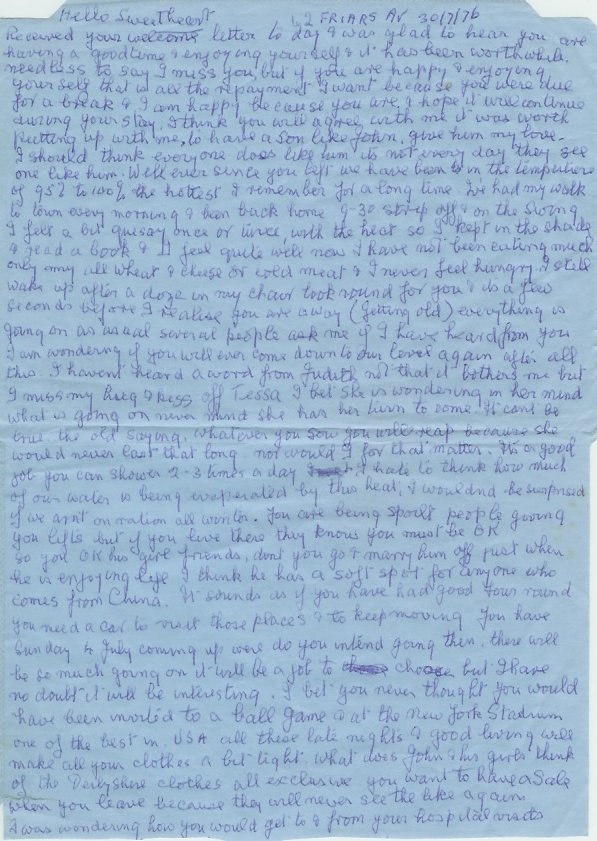 Hello Sweetheart
62 FRIARS AV 30/7/76
Received your welcome letter to day & was glad to hear you are
having a goodtime & enjoying yourself & it has been worthwhile.
needless to say I miss you, but if you are happy & enjoying
yourself that is all the repayment I want because you were due
for a break & I am happy because you are, & hope it will continue
during your stay. I think you will agree with me it was worth
putting up with me, to have a son like John, give him my love.
I should think everyone does like him its not every day they see
one like him. Well ever since you left we have been in the tempeture
of 95% to 100% the hottest I remember for a long time. I've had my walk
to town every morning & been back home 9-30 strip off & on the swing
I felt a bit queasy once or twice, with the heat so I kept in the shade
& read a book & I feel quite well now I have not been eating much
only my all wheat & cheese or cold meat & I never feel hungry. I still
wake up after a doze in my chair look round for you & its a few
seconds before I realise you are away (getting old) everything is
going on as usual several people ask me if I have heard from you
I am wondering if you will ever come down to our level again after all
this. I havent heard a word from Judith not that it bothers me but
I miss my hug & kiss off Tessa I bet she is wondering in her mind
what is going on never mind she has her turn to come. It cant be
true the old saying, whatever you sow you will reap because she
would never last that long. nor would I for that matter. It's a good
job you can shower 2-3 times a day I hate to think how much
of our water is being evaperated by this heat, I would nd be surprised
if we arnt on ration all winter. You are being sports people giving
you lifts but if you live there they knows you must be OK
so you OK his girl friends, dont you go & marry him off just when
he is enjoying life I think he has a soft spot for anyone who
comes from China. It sounds as if you have had good tour round
you need a car to visit those places & to keep moving You have
Sunday 4 July coming up were do you intend going then, there will
be so much going on it will be a job to choose but I have
no doubt it will be interesting. I bet you never thought you would
have been invited to a ball game & at the New York Stadium
one of the best in USA all these late nights & good living will
make all your clothes a bit tight. What does John & his girls think
of the Derbyshire clothes all exclusive you want to have a Sale
when you leave because they will never see the like again
I was wondering how you would get to & from your hospital visits